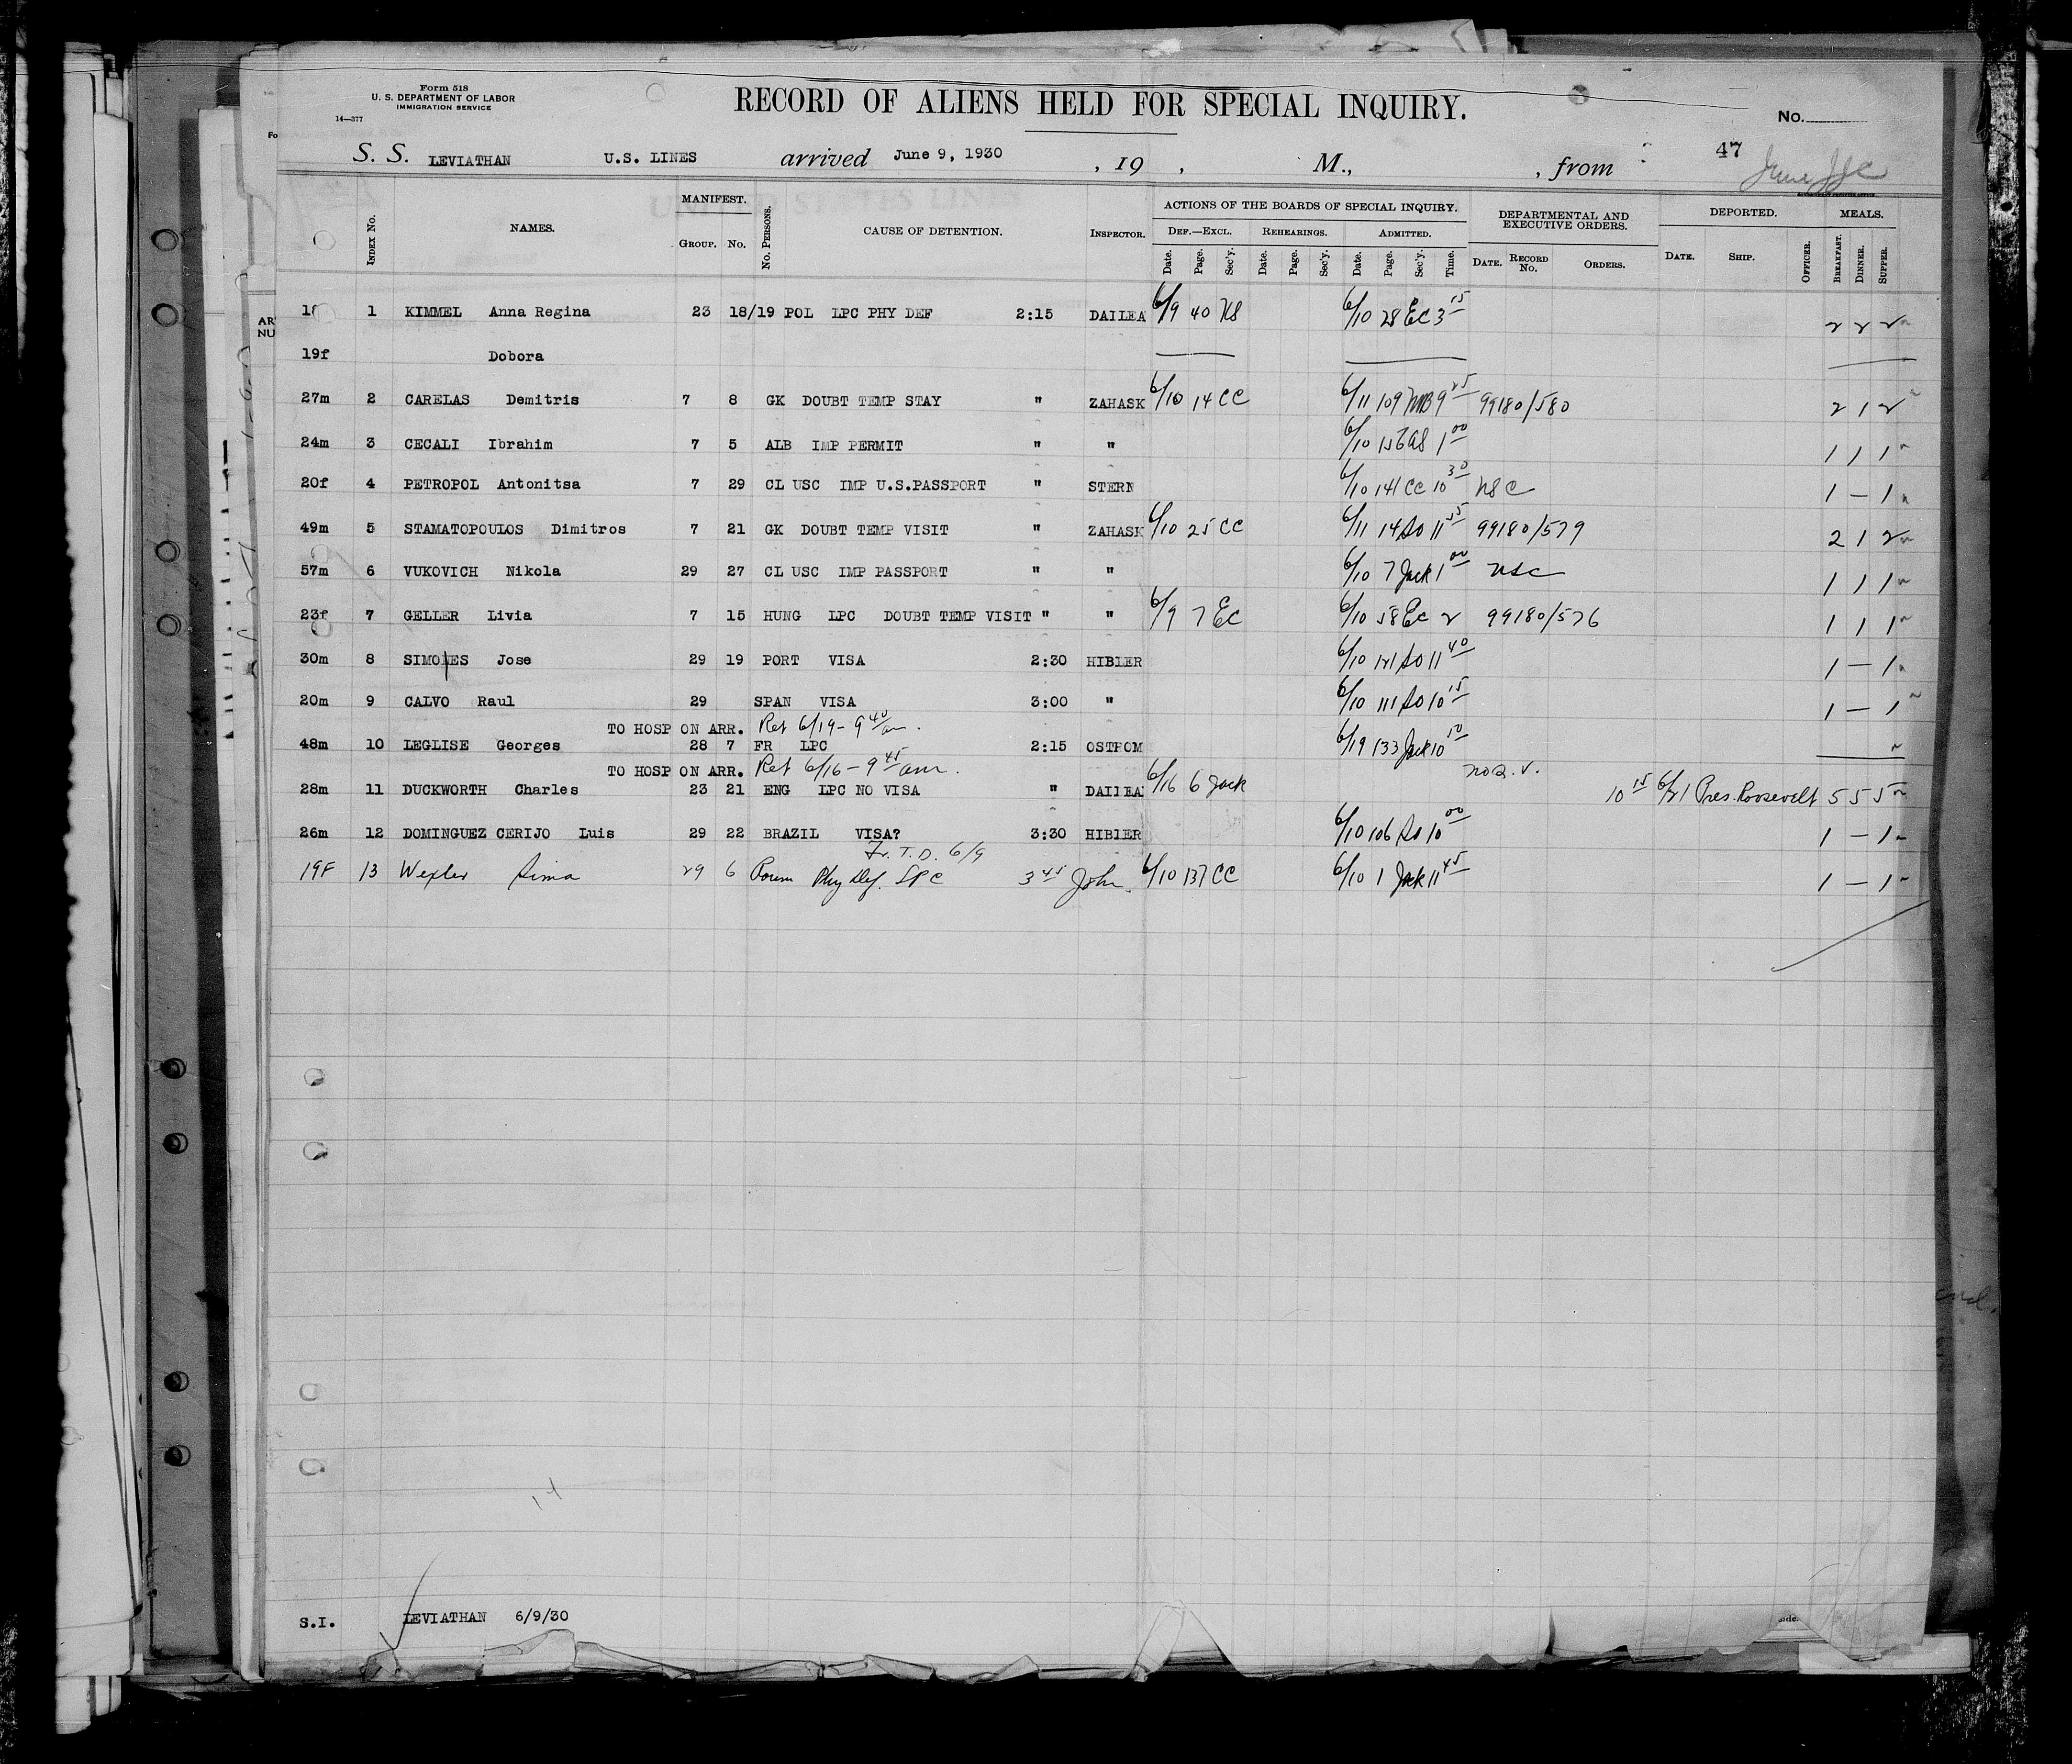 Form 518
U. S. DEPARTMENT OF LABOR
IMMIGRATION SERVICE
14—377
RECORD OF ALIENS HELD FOR SPECIAL INQUIRY.
No.
S. S. LEVIATHAN U.S. LINES arrived June 9, 1930 , 19 , M., , from 47
INDEX No. NAMES. MANIFEST. GROUP. No. No. PERSONS. CAUSE OF DETENTION. INSPECTOR. ACTIONS OF THE BOARDS OF SPECIAL INQUIRY. DEF.—EXCL. Date. Page. Sec'y. REHEARINGS. Date. Page. Sec'y. ADMITTED. Date. Page. Sec'y. Time. DEPARTMENTAL AND EXECUTIVE ORDERS. DATE. RECORD No. ORDERS. DEPORTED. DATE. SHIP. OFFICER. MEALS. BREAKFAST. DINNER. SUPPER.
18 1 KIMMEL Anna Regina 23 18/19 POL LPC PHY DEF 2:15 DAILEA 6/9 40 NS 6/10 28 EC 3 15 2 2 2
19f Dobora
27m 2 CARELAS Demitris 7 8 GK DOUBT TEMP STAY " ZAHASK 6/10 14 CC 6/11 109 MB 9 25 99180/580 2 1 2
24m 3 CECALI Ibrahim 7 5 ALB IMP PERMIT " " 6/10 1 00 1 1 1
20f 4 PETROPOL Antonitsa 7 29 CL USC IMP U.S.PASSPORT " STERN 6/10 141 CC 10 30 USC 1 — 1
49m 5 STAMATOPOULOS Dimitros 7 21 GK DOUBT TEMP VISIT " ZAHASK 6/10 25 CC 6/11 14 So 11 55 99180/579 2 1 2
57m 6 VUKOVICH Nikola 29 27 CL USC IMP PASSPORT " " 6/10 7 Jack 1 00 USC 1 1 1
23f 7 GELLER Livia 7 15 HUNG LPC DOUBT TEMP VISIT " " 6/9 7 EC 6/10 58 EC 2 99180/576 1 1 1
30m 8 SIMOES Jose 29 19 PORT VISA 2:30 HIBLER 6/10 121 So 11 40 1 — 1
20m 9 CALVO Raul 29 SPAN VISA 3:00 " 6/10 111 So 10 15 1 — 1
TO HOSP ON ARR. Ret 6/19 - 9 40 am.
48m 10 LEGLISE Georges 28 7 FR LPC 2:15 OSTROM 6/19 133 Jack 10 50
TO HOSP ON ARR. Ret 6/16 - 9 45 am.
28m 11 DUCKWORTH Charles 23 21 ENG LPC NO VISA " DAILEA 6/16 6 Jack 10 15 6/21 Pres. Roosevelt 5 5 5
26m 12 DOMINGUEZ CERIJO Luis 29 22 BRAZIL VISA? 3:30 HIBLER 6/10 106 So 10 00 1 — 1
Fr. T.D. 6/9
19F 13 Wexler Sima 29 6 Roum Phy Def. LPC 3 45 John. 6/10 137 CC 6/10 1 Jack 11 45 1 — 1
14
S.I. LEVIATHAN 6/9/30